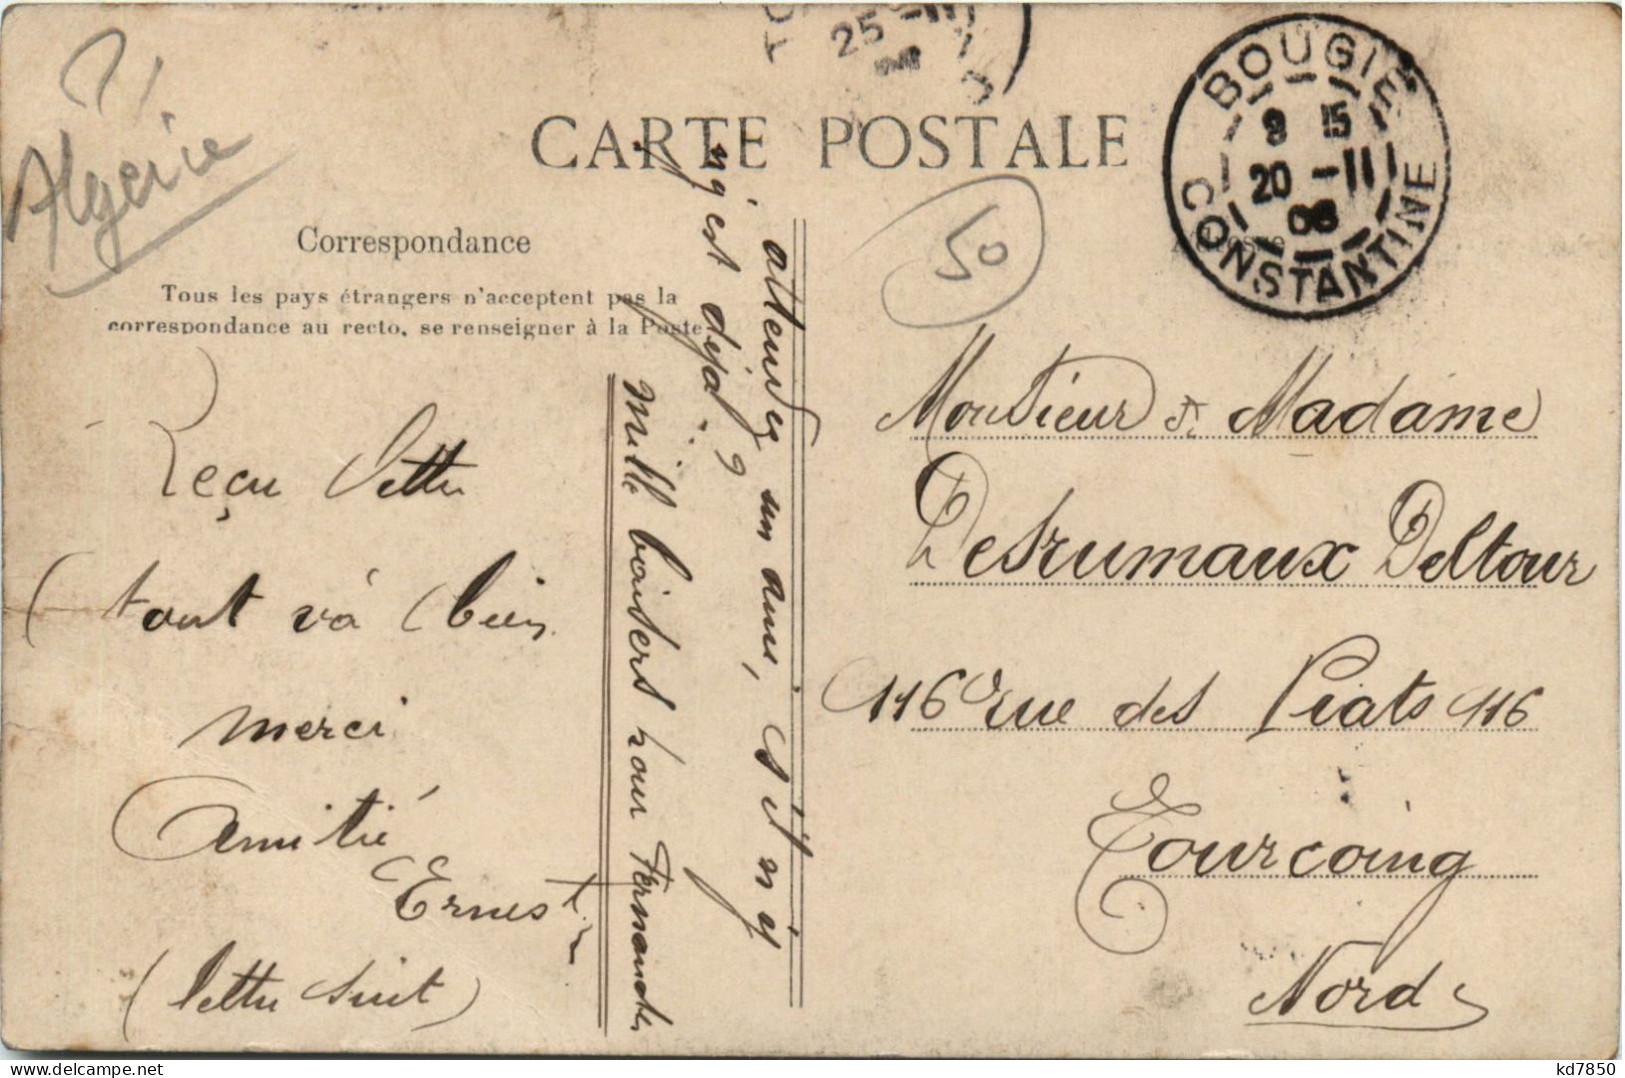 Algérie
TO
25 -II
BOUGIE
9 15
20 -II
06
CONSTANTINE
CARTE POSTALE
50
Correspondance
Adresse
Tous les pays étrangers n'acceptent pas la
correspondance au recto, se renseigner à la Poste
Reçu lettre
(tout va bien
merci
Amitié
Ernest
(lettre suit)
Mille baisers pour Fernande
attendez un ami, s'il n'y
n'y est déjà ?
Monsieur & Madame
Desrumaux Deltour
116 rue des Piats 116
Tourcoing
Nord
kd7850